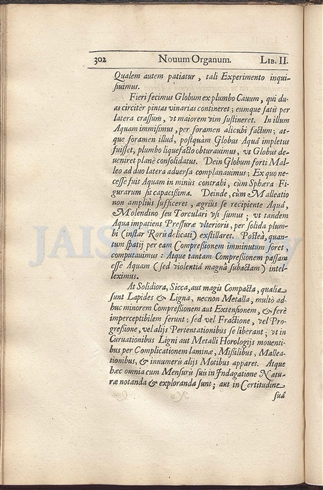 302 Novum Organum. LIB. II.
Qualem autem patiatur, tali Experimento inqui-
sivimus.
Fieri fecimus Globum ex plumbo Cauum, qui du-
as circitèr pintas vinarias contineret; eumque satis per
latera crassum, vt maiorem vim sustineret. In illum
Aquam immisimus, per foramen alicubi factum; at-
que foramen illud, postquàm Globus Aquâ impletus
fuisset, plumbo liquefacto obturauimus, vt Globus de-
ueniret planè consolidatus. Dein Globum forti Mal-
leo ad duo latera aduersa complanauimus; Ex quo ne-
cesse fuit Aquam in minus contrahi, cùm Sphæra Fi-
gurarum sit capacissima. Deinde, cùm Malleatio
non ampliùs sufficeret, ægriùs se recipiente Aquâ,
Molendino seu Torculari vsi sumus; vt tandem
Aqua impatiens Pressuræ vlterioris, per solida plum-
bi (instar Roris delicati) exstillaret. Posteà, quan-
tum spatij per eam Compressionem imminutum foret,
computauimus: Atque tantam Compressionem passam
esse Aquam (sed violentiâ magnâ subactam) intel-
leximus.
At Solidiora, Sicca, aut magis Compacta, qualia
sunt Lapides & Ligna, necnon Metalla, multò ad-
huc minorem Compressionem aut Extensionem, & ferè
imperceptibilem ferunt; sed vel Fractione, vel Pro-
gressione, vel alijs Pertentationibus se liberant; vt in
Curuationibus Ligni aut Metalli Horologijs mouenti-
bus per Complicationem laminæ, Missilibus, Mallea-
tionibus, & innumeris alijs Motibus apparet. Atque
hæc omnia cum Mensuris suis in Indagatione Natu-
ræ notanda & exploranda sunt; aut in Certitudine
suâ